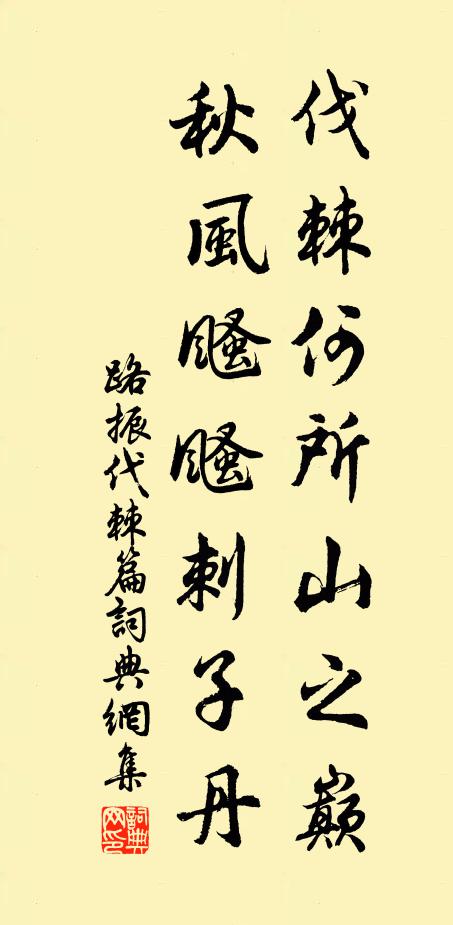 伐棘何所山之巔
秋風颾颾刺子丹
路振伐棘篇詞典網集
詞典网印